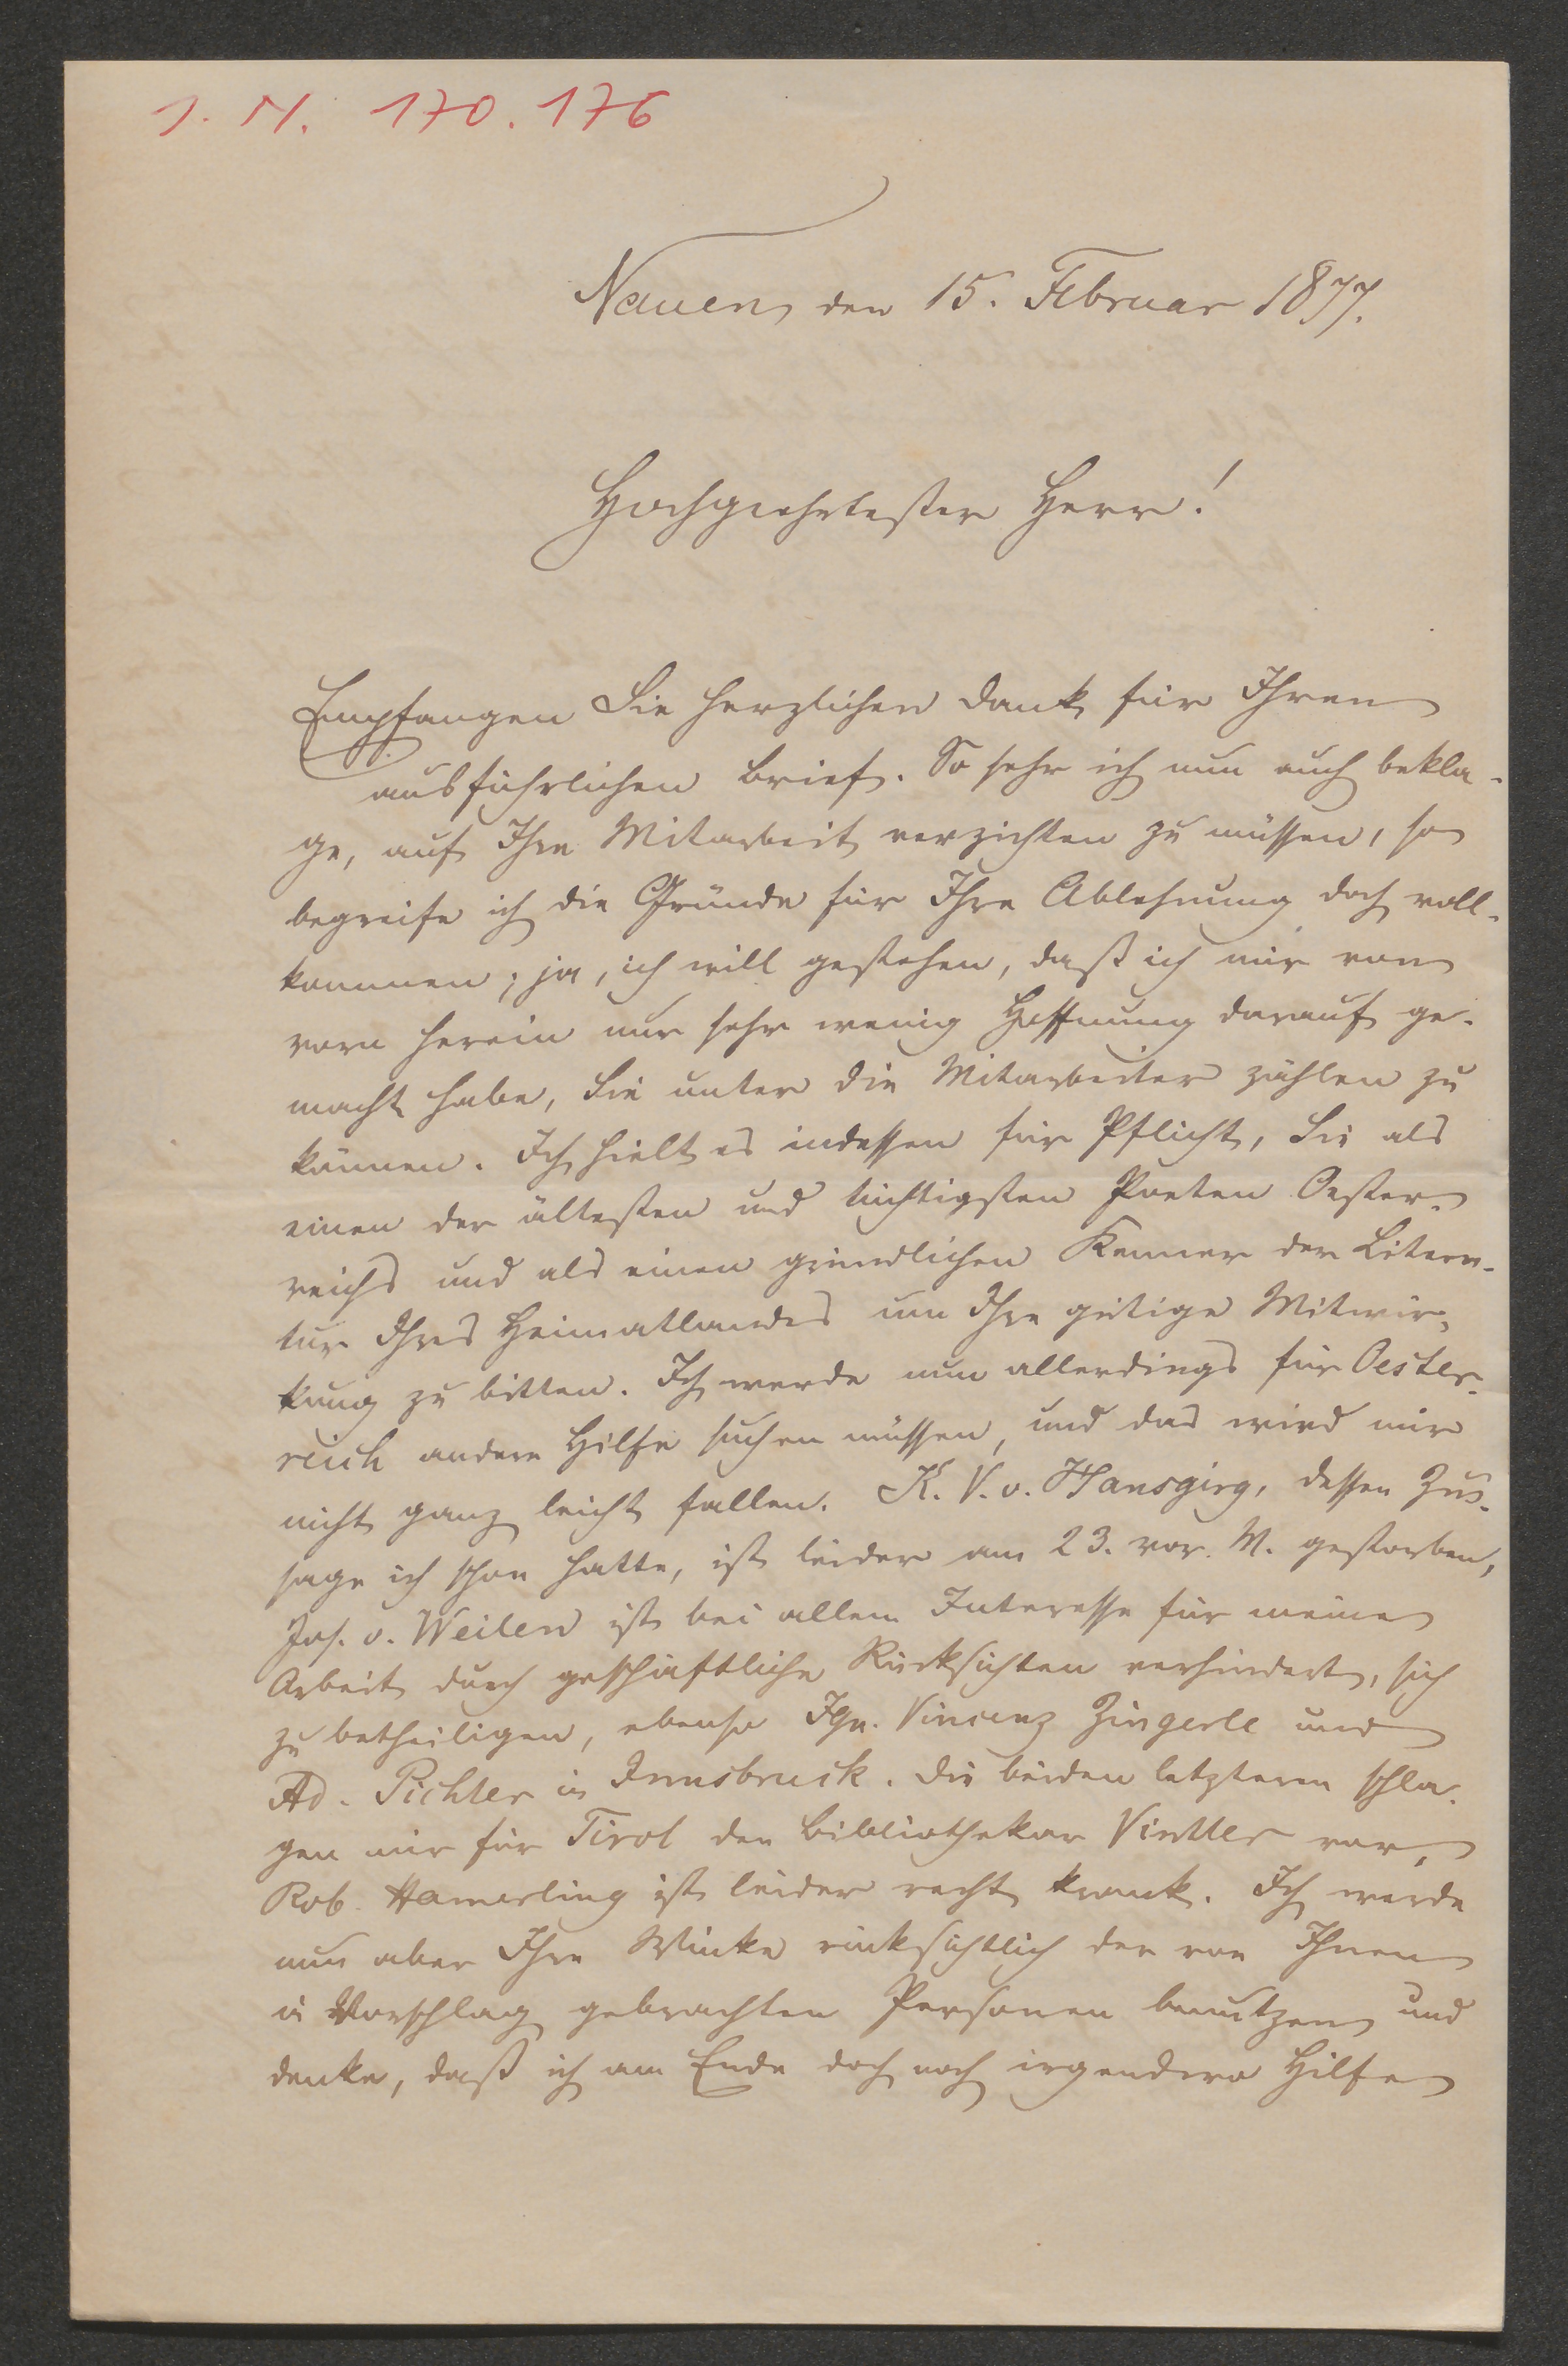 I. N. 170.176
Nauen, den 15. Februar 1877.
Hochgeehrtester Herr!
Empfangen Sie herzlichen Dank für Ihren
ausführlichen Brief. So sehr ich nun auch bekla-
ge, auf Ihre Mitarbeit verzichten zu müssen, so
begreife ich die Gründe für Ihre Ablehnung doch voll-
kommen; ja, ich will gestehen, daß ich mir von
vorn herein nur sehr wenig Hoffnung darauf ge-
macht habe, Sie unter die Mitarbeiter zählen zu
können. Ich hielt es indessen für Pflicht, Sie als
einen der ältesten und tüchtigsten Poeten Oester-
reichs und als einen gründlichen Kenner der Litera-
tur Ihres Heimatlandes um Ihre gütige Mitwir-
kung zu bitten. Ich werde nun allerdings für Oester-
reich andere Hilfe suchen müssen, und das wird mir
nicht ganz leicht fallen. K. V. v. Hansgirg, dessen Zu-
sage ich schon hatte, ist leider am 23. vor. M. gestorben,
Jos. v. Weilen ist bei allem Interesse für meine
Arbeit durch geschäftliche Rücksichten verhindert, sich
zu betheiligen, ebenso Ign. Vincenz Zingerle und
Ad. Pichler in Innsbruck. Die beiden letzteren schla-
gen mir für Tirol den Bibliothekar Vintler vor,
Rob. Hamerling ist leider recht krank. Ich werde
nun aber Ihre Winke rücksichtlich der von Ihnen
in Vorschlag gebrachten Personen benutzen und
denke, daß ich am Ende doch noch irgendwo Hilfe